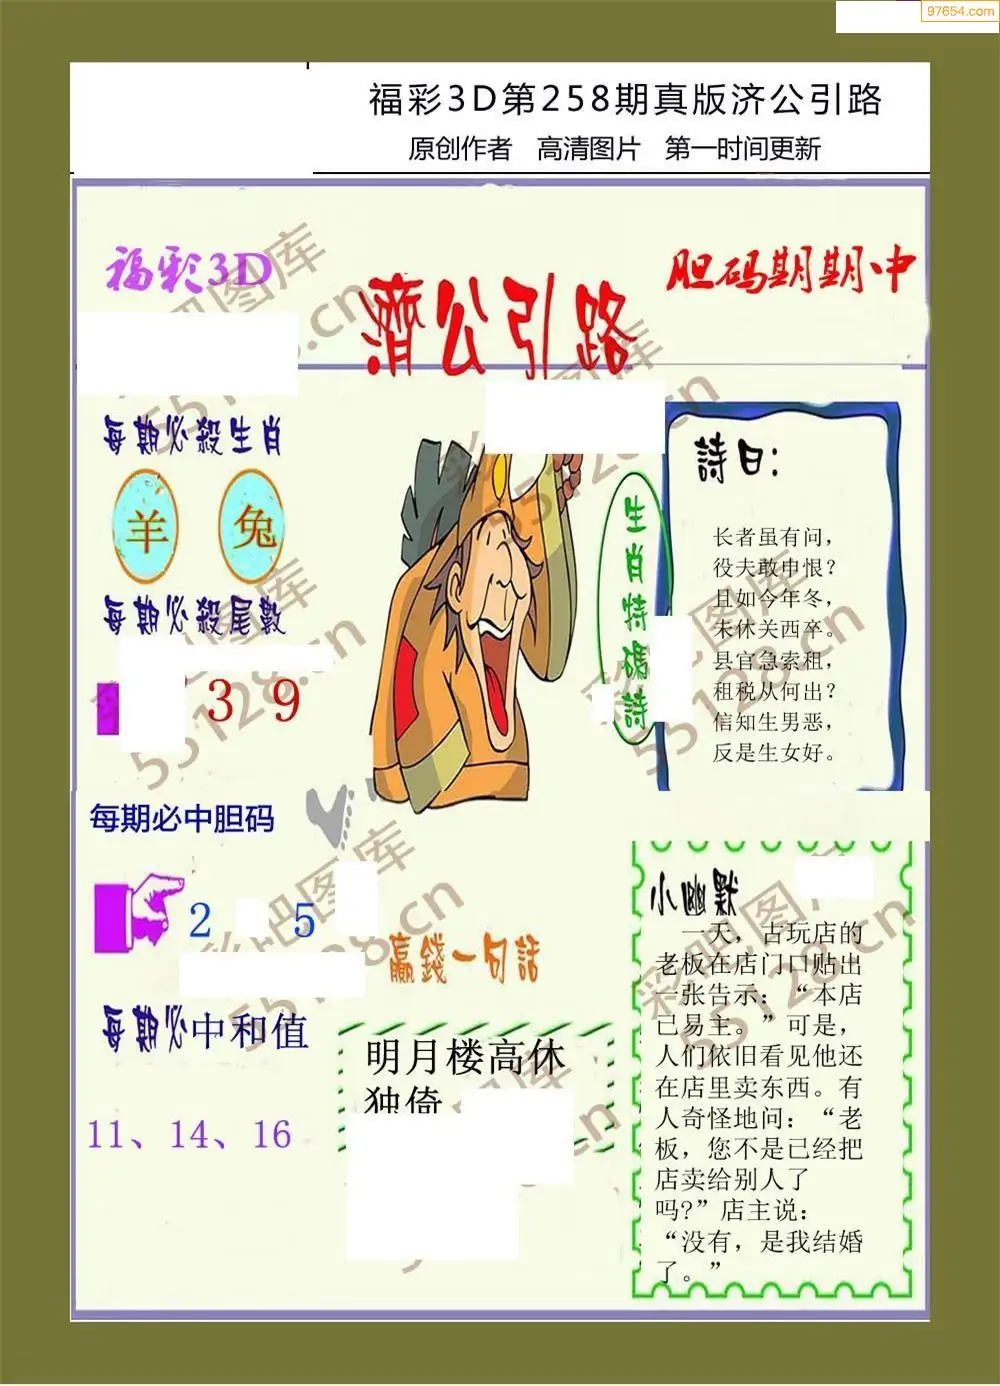 97654.com
福彩3D第258期真版济公引路
原创作者 高清图片 第一时间更新
福彩3D
濟公引路
胆码期期中
每期必殺生肖
羊 兔
每期必殺尾數
3 9
每期必中胆码
2 5
每期必中和值
11、14、16
生肖特碼詩
詩曰：
长者虽有问，
役夫敢申恨？
且如今年冬，
未休关西卒。
县官急索租，
租税从何出？
信知生男恶，
反是生女好。
贏錢一句話
明月楼高休
独倚
小幽默
一天，古玩店的
老板在店门口贴出
一张告示：“本店
已易主。”可是，
人们依旧看见他还
在店里卖东西。有
人奇怪地问：“老
板，您不是已经把
店卖给别人了
吗?”店主说：
“没有，是我结婚
了。”
彩吧图库
55128.cn